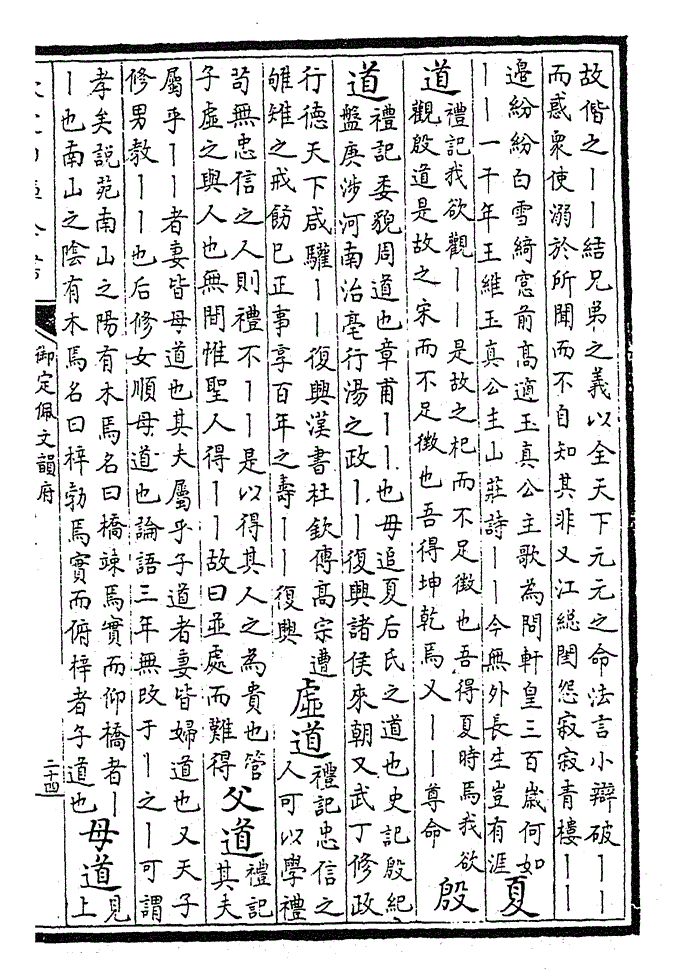 故偕之丨丨結兄弟之義以全天下元元之命法言小辯破丨丨
而惑衆使溺於所聞而不自知其非乂江緫閨怨寂寂青樓丨丨
邉紛紛白雪綺窓前髙適玉真公主歌為問軒皇三百歳何如
丨丨一千年王維玉真公主山莊詩丨丨今無外長生豈有涯
夏
道
禮記我欲觀丨丨是故之杞而不足徴也吾得夏時焉我欲
觀殷道是故之宋而不足徴也吾得坤乾焉又丨丨尊命
殷
道
禮記委貌周道也章甫丨丨也毋追夏后氏之道也史記殷紀
盤庚涉河南治亳行湯之政丨丨復興諸侯來朝又武丁修政
行徳天下咸驩丨丨復興漢書杜欽傳髙宗遭
雊雉之戒飭已正事享百年之壽丨丨復興
虛道
禮記忠信之
人可以學禮
苟無忠信之人則禮不丨丨是以得其人之為貴也管
子虛之與人也無間惟聖人得丨丨故曰並處而難得
父道
禮記
其夫
屬乎丨丨者妻皆母道也其夫屬乎子道者妻皆婦道也又天子
修男教丨丨也后修女順母道也論語三年無改于丨之丨可謂
孝矣說苑南山之陽有木焉名曰橋竦焉實而仰橋者丨
丨也南山之陰有木焉名曰梓勃焉實而俯梓者子道也
母道
見
上
御定佩文韻府
二十四